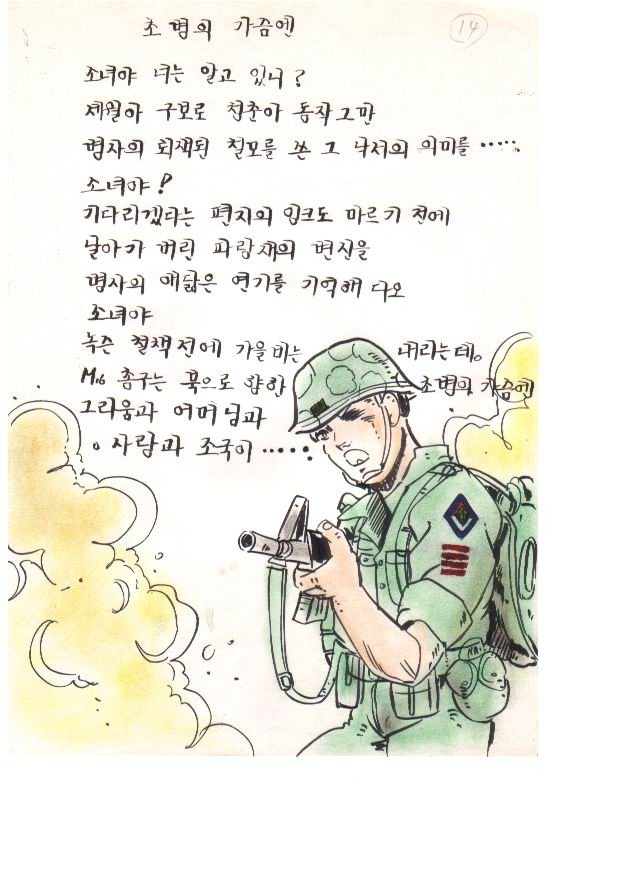 초병의 가슴엔
14
소녀야 너는 알고 있니?
세월아 구보로 청춘아 동작그만
병사의 퇴색된 철모를 쓴 그 낙서의 의미를 .....
소녀야!
기다리겠다는 편지의 잉크도 마르기 전에
날아가 버린 파랑새의 변신을
병사의 애닯은 연기를 기억해 다오
소녀야
녹슨 철책 전에 가을비는 내리는데.
M16 총구는 북으로 향한 초병의 가슴엔
그리움과 어머님과
사랑과 조국이 .....